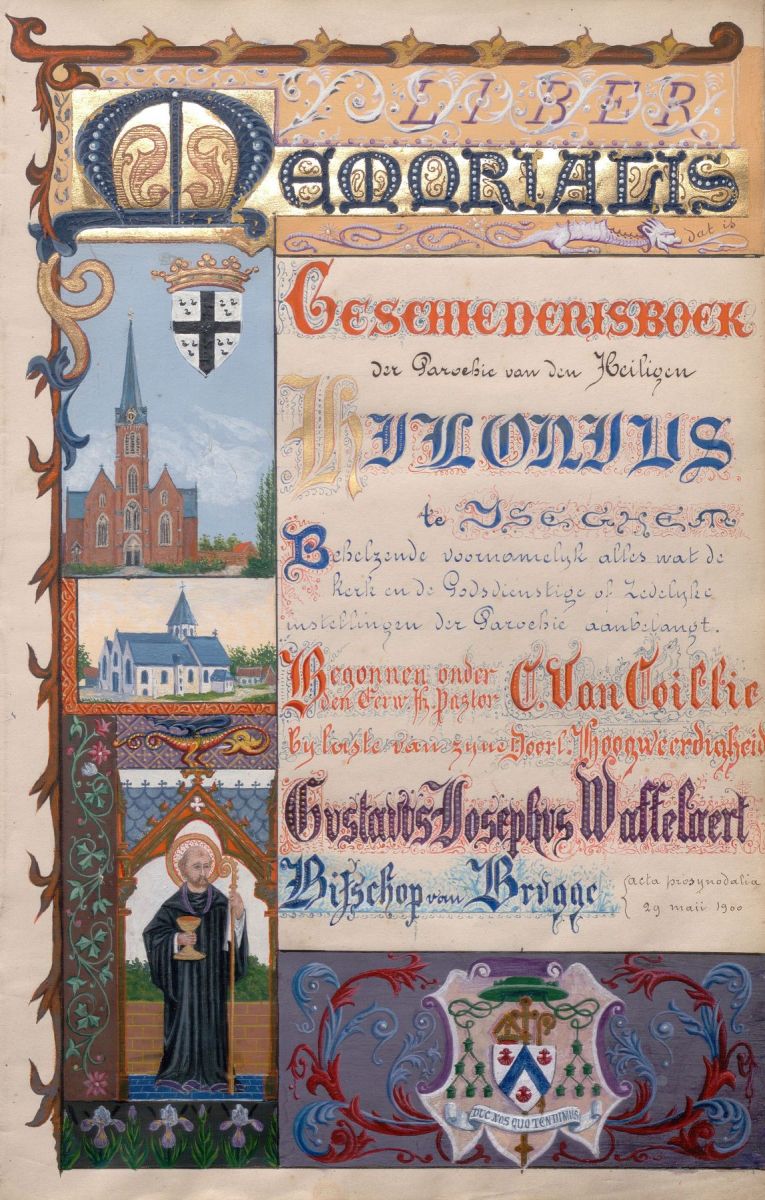 LIBER
MEMORIALIS
dat is
GESCHIEDENISBOEK
der Parochie van den Heiligen
HILONIUS
te YSEGHEM
Behelzende voornamelyk alles wat de
kerk en de Godsdienstige of Zedelyke
instellingen der Parochie aanbelangt.
Begonnen onder
den Eerw. H. Pastor C. Van Coillie
by laste van zyne Doorl. Hoogweerdigheid
Gustavus-Josephus Waffelaert
Bisschop van Brugge
acta prosynodalia
29 maii 1900
DUC NOS QUO TENDIMUS